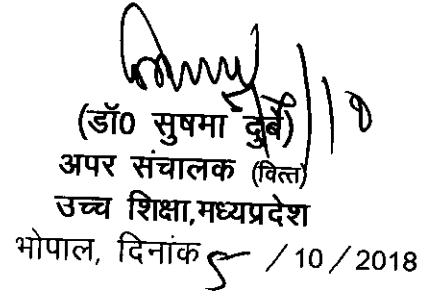 (डॉ0 सुषमा दुबे)
अपर संचालक (वित्त)
उच्च शिक्षा,मध्यप्रदेश
भोपाल, दिनांक 5 / 10 / 2018